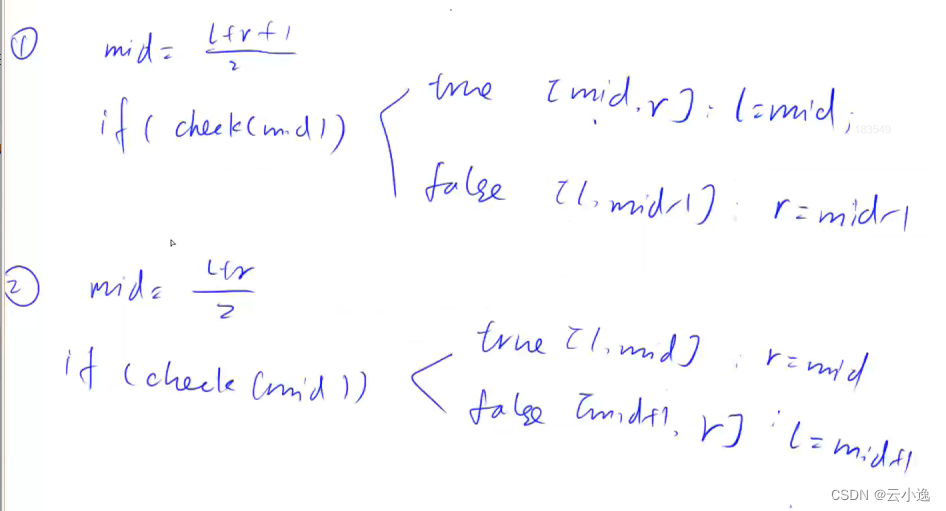 ① mid = (l+r+1)/2
if ( check(mid) )
true [mid, r] : l=mid;
183549
false [l, mid-1] : r=mid-1
② mid = (l+r)/2
if (check (mid))
true [l, mid] : r=mid
false [mid+1, r] : l=mid+1
CSDN @云小逸